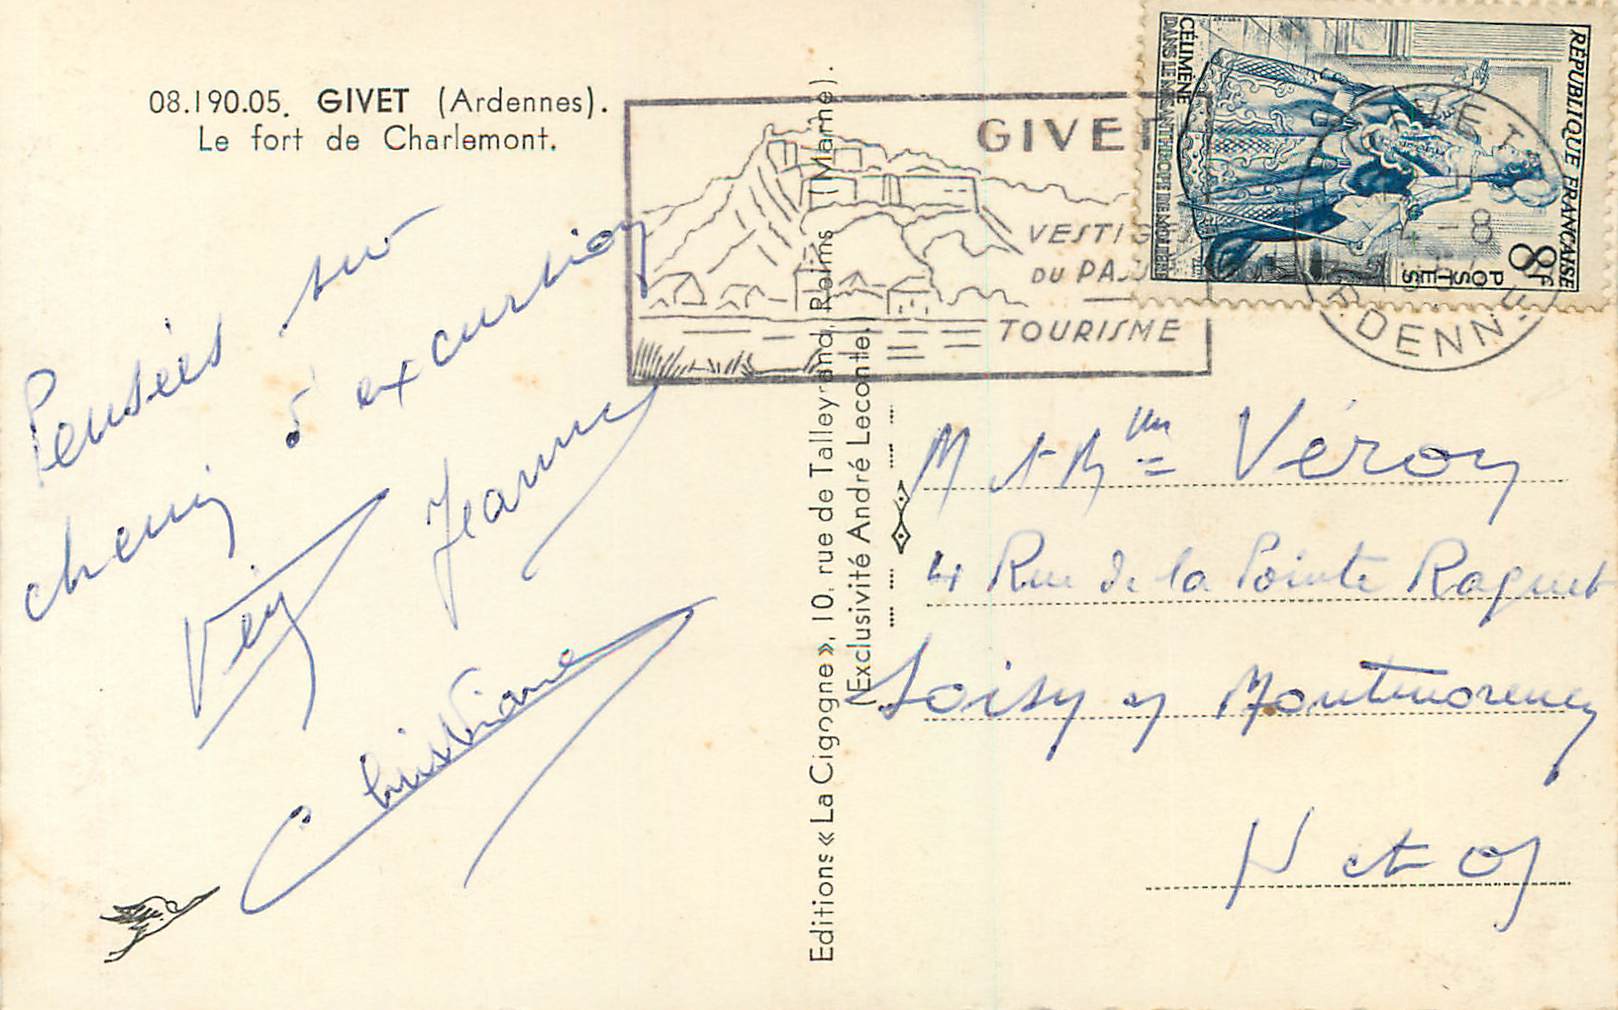 08.190.05. GIVET (Ardennes).
Le fort de Charlemont.
Pensées sur
chemin d'excursion
Jeanne
Christiane
Editions « La Cigogne », 10, rue de Talleyrand, Reims (Marne).
(Exclusivité André Leconte)
GIVET
VESTIGES
DU PASSÉ
TOURISME
RÉPUBLIQUE FRANÇAISE
8F
POSTES
CÉLIMÈNE
DANS LE MISANTHROPE DE MOLIÈRE
GIVET
4-8
ARDENNES
M et Mme Véron
4 Rue de la Pointe Raquet
Soisy s/ Montmorency
S et O